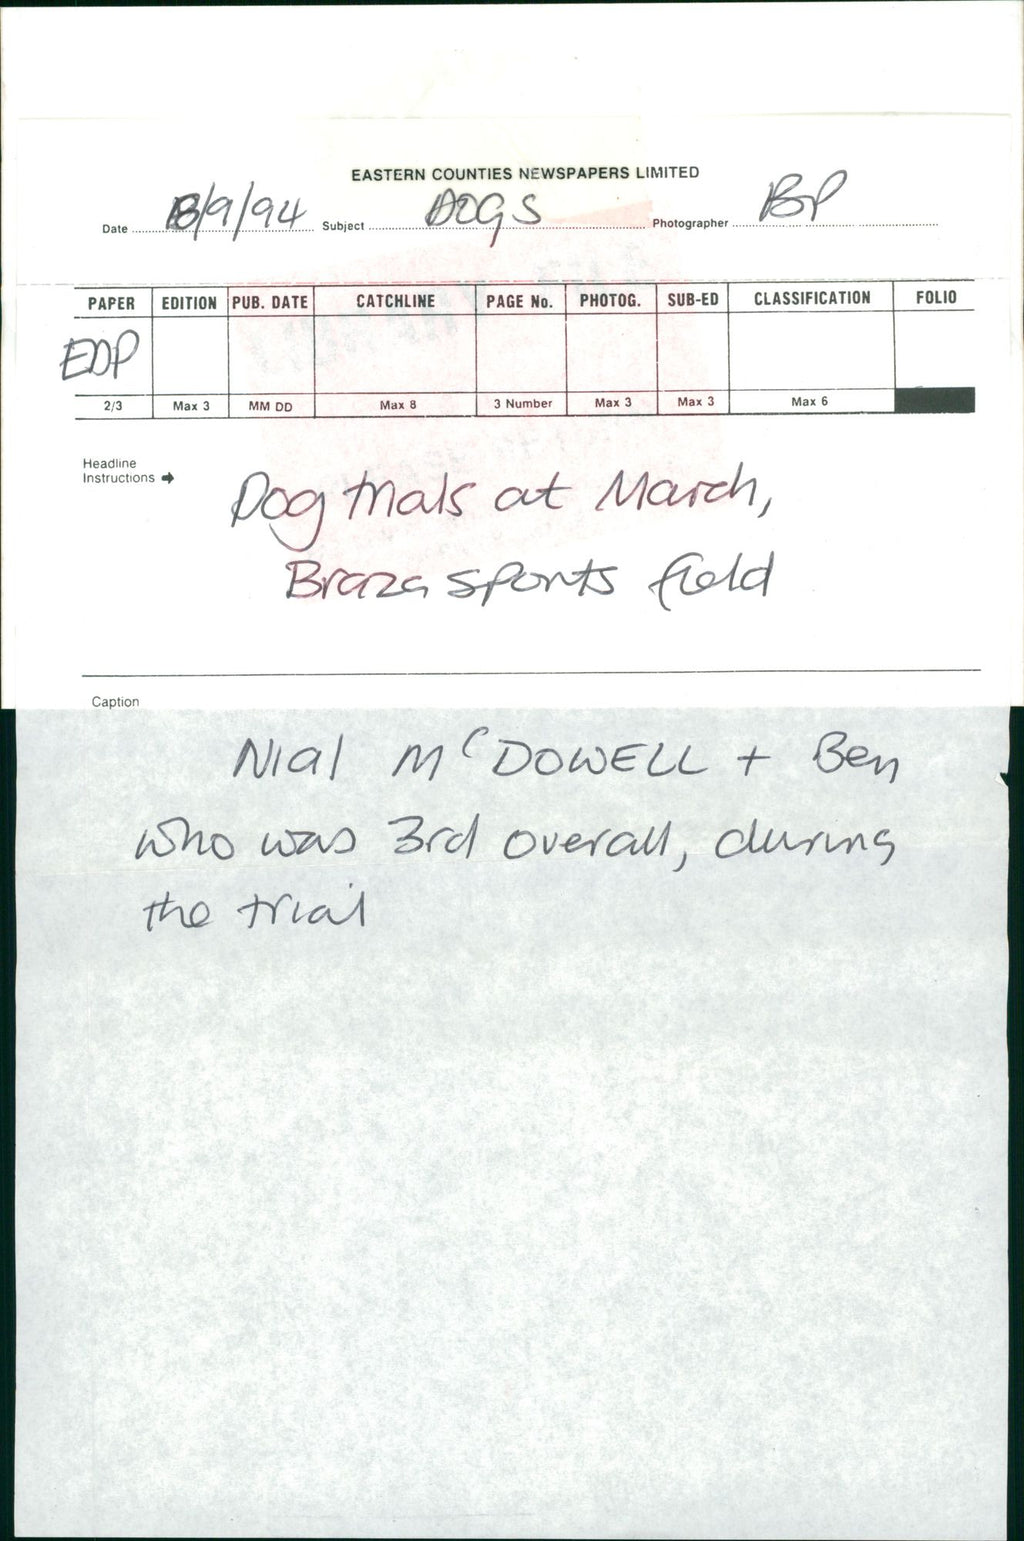 EASTERN COUNTIES NEWSPAPERS LIMITED
Date /9/94 Subject DOGS Photographer BP
PAPER EDITION PUB. DATE CATCHLINE PAGE No. PHOTOG. SUB-ED CLASSIFICATION FOLIO
EDP
2/3 Max 3 MM DD Max 8 3 Number Max 3 Max 3 Max 6
Headline
Instructions
Dog trials at March,
Braza sports field
Caption
Nial McDOWELL + Ben
who was 3rd overall, during
the trial